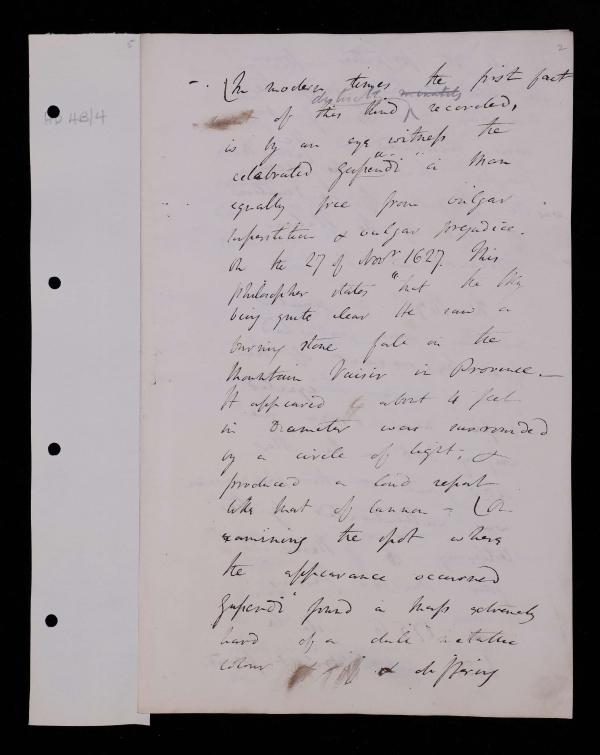 5
2
HD 4B/4
- (In modern times the first fact
distinctly minutely
of this kind recorded,
is by an eye witness the
celebrated Gassendi a man
equally free from vulgar
superstition & vulgar prejudice.
On the 27 of Novr. 1627. This
philosopher states "that the sky
being quite clear He saw a
burning stone fall on the
Mountain Vaisir in Provence. —
It appeared about 4 feet
in Diameter was surrounded
by a circle of light, &
produced a loud report
like that of Cannon - (On
examining the spot where
the appearance occurred
Gassendi found a Mass extremely
hard of a dull metallic
colour & differing